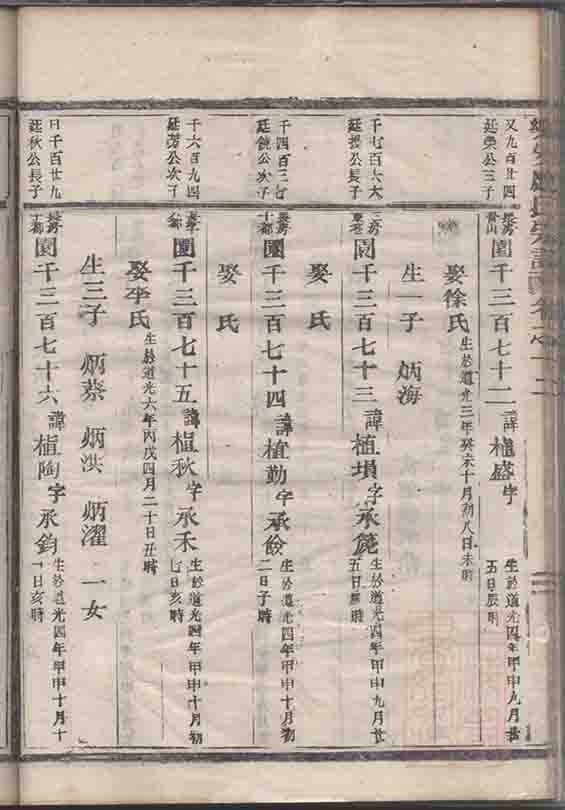 又九百廿四
延榮公三子
長房
青山
園千三百七十二
諱
植盛
字
生於道光四年甲申九月廿
五日辰時
娶徐氏
生於道光三年癸未十月初八日未時
生一子 炳海
千七百六大
延授公長子
三房
園千三百七十三
諱
植塤
字
承篪
生於道光四年甲申九月廿
五日
時
娶 氏
千四百三七
延鏡公次子
長房
十都
園千三百七十四
諱
植勤
字
承儉
生於道光四年甲申十月初
二日子時
娶 氏
千六百九四
延芳公次子
園千三百七十五
諱
植秋
字
承禾
生於道光四年甲申十月初
七日亥時
娶李氏
生於道光六年丙戌四月二十日丑時
生三子 炳蔡 炳洪 炳濯 一女
千百廿九
延秋公長子
長房
十都
園千三百七十六
諱
植陶
字
承鈞
生於道光四年甲申十月十
日亥時